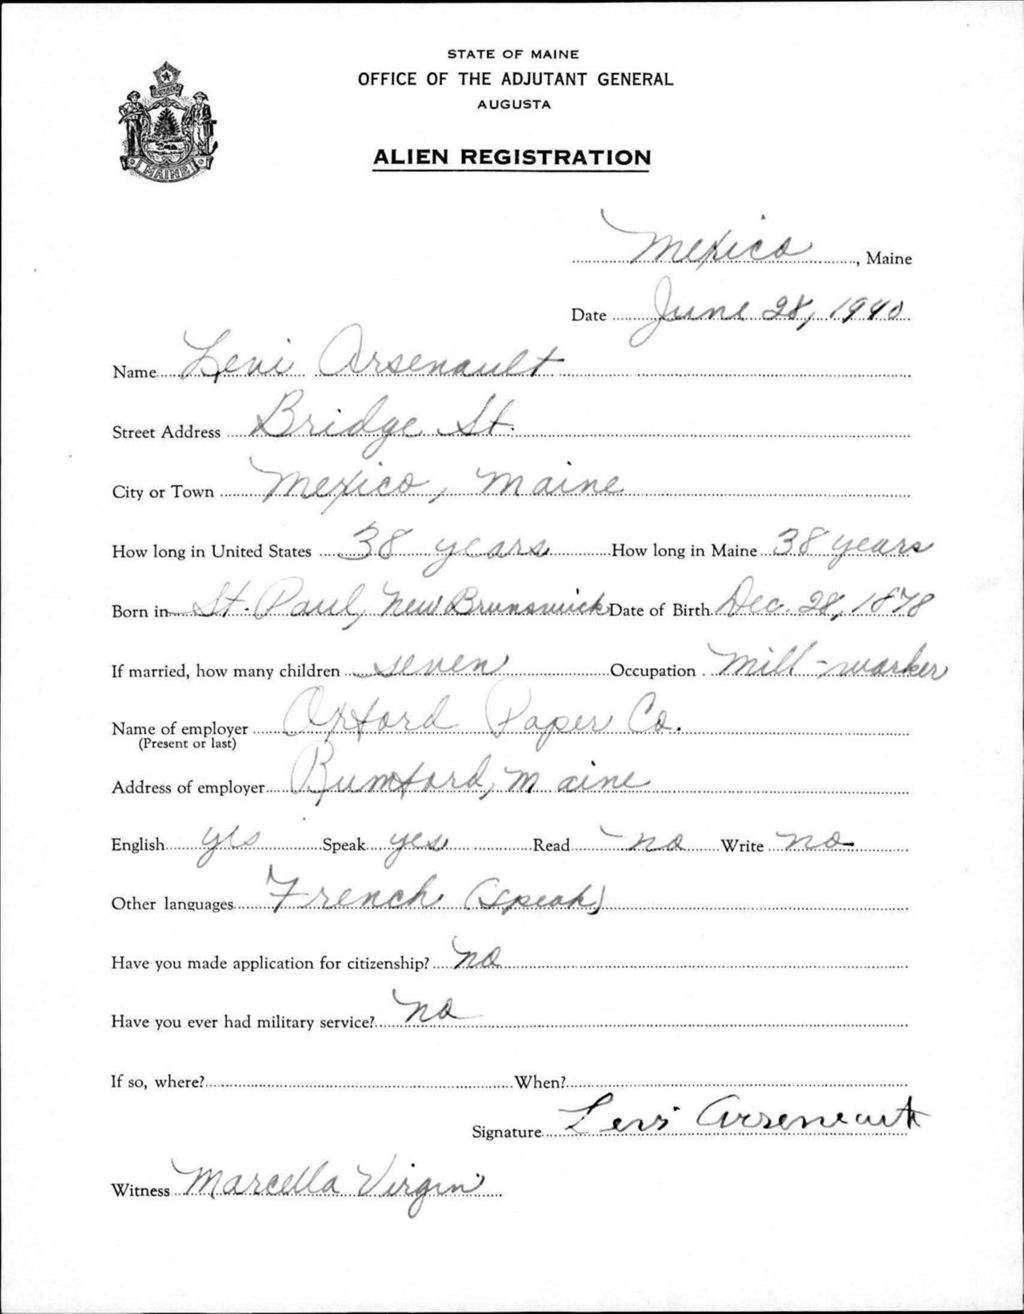 STATE OF MAINE
OFFICE OF THE ADJUTANT GENERAL
AUGUSTA
ALIEN REGISTRATION
MAINE
Mexico, Maine
Date June 28, 1940
Name Levi Arsenault
Street Address Bridge St.
City or Town Mexico, Maine
How long in United States 38 years How long in Maine 38 years
Born in St. Paul, New Brunswick Date of Birth Dec. 28, 1878
If married, how many children seven Occupation Mill-worker
Name of employer Oxford Paper Co.
(Present or last)
Address of employer Rumford, Maine
English yes Speak yes Read no Write no
Other languages French (speak)
Have you made application for citizenship? no
Have you ever had military service? no
If so, where? When?
Signature Levi Arseneault
Witness Marcella Virgin